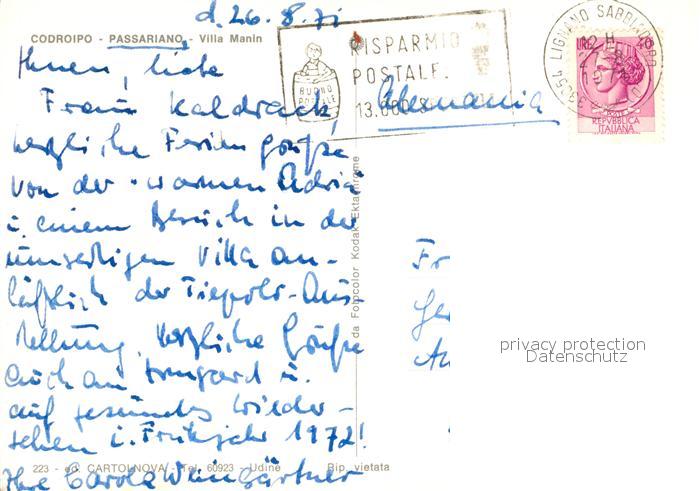 d. 26.8.71
CODROIPO - PASSARIANO - Villa Manin
Ihnen, liebe
Frau Kaldrack,
herzliche Feriengrüße
von der warmen Adria
u. einem Besuch in der
umseitigen Villa an-
läßlich der Tiepolo-Aus-
stellung. Herzliche Grüße
auch an Irmgard u.
auf gesundes Wieder-
sehen i. Frühjahr 1972!
Ihre Carola Weingärtner
223 - ed. CARTOLNOVA - Tel. 60923 - Udine Rip. vietata
da Fotocolor Kodak Ektachrome
RISPARMIO
POSTALE.
BUONO
POSTALE
13.000
Alemania
33054 LIGNANO SABBIADORO
LIRE 40
REPVBBLICA
ITALIANA
Fr
Ge
Au
privacy protection
Datenschutz